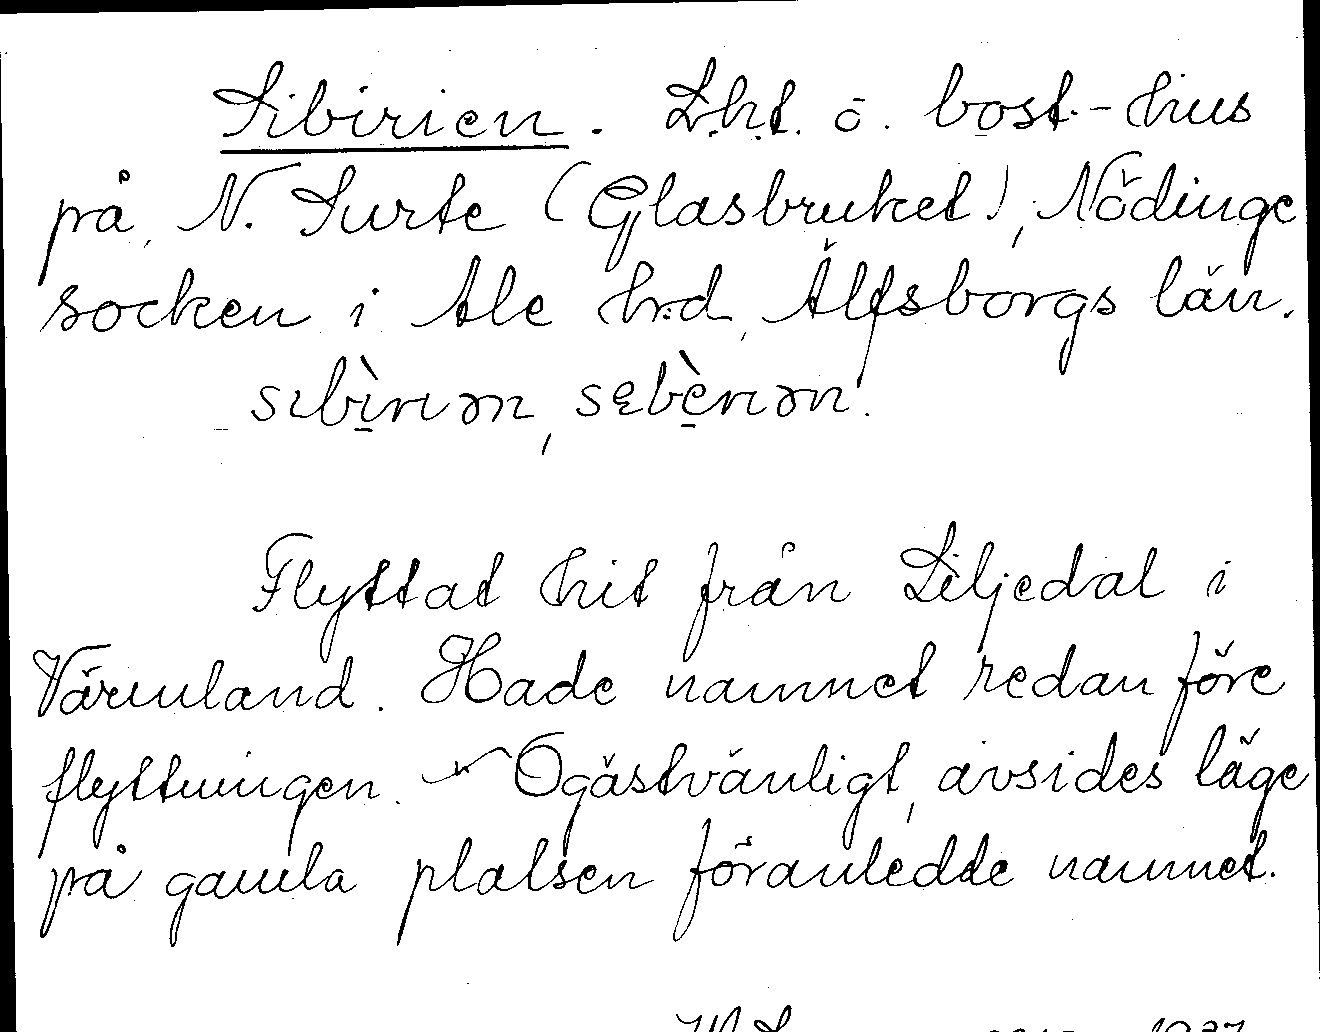 Sibirien. Lht. o. bost.-hus
på N. Surte (Glasbruket), Nödinge
socken i Ale hrd, Älfsborgs län.
sɩbìrɩən, sebèrɩən.
Flyttat hit från Liljedal i
Värmland. Hade namnet redan före
flyttningen. Ogästvänligt, avsides läge
på gamla platsen föranledde namnet.